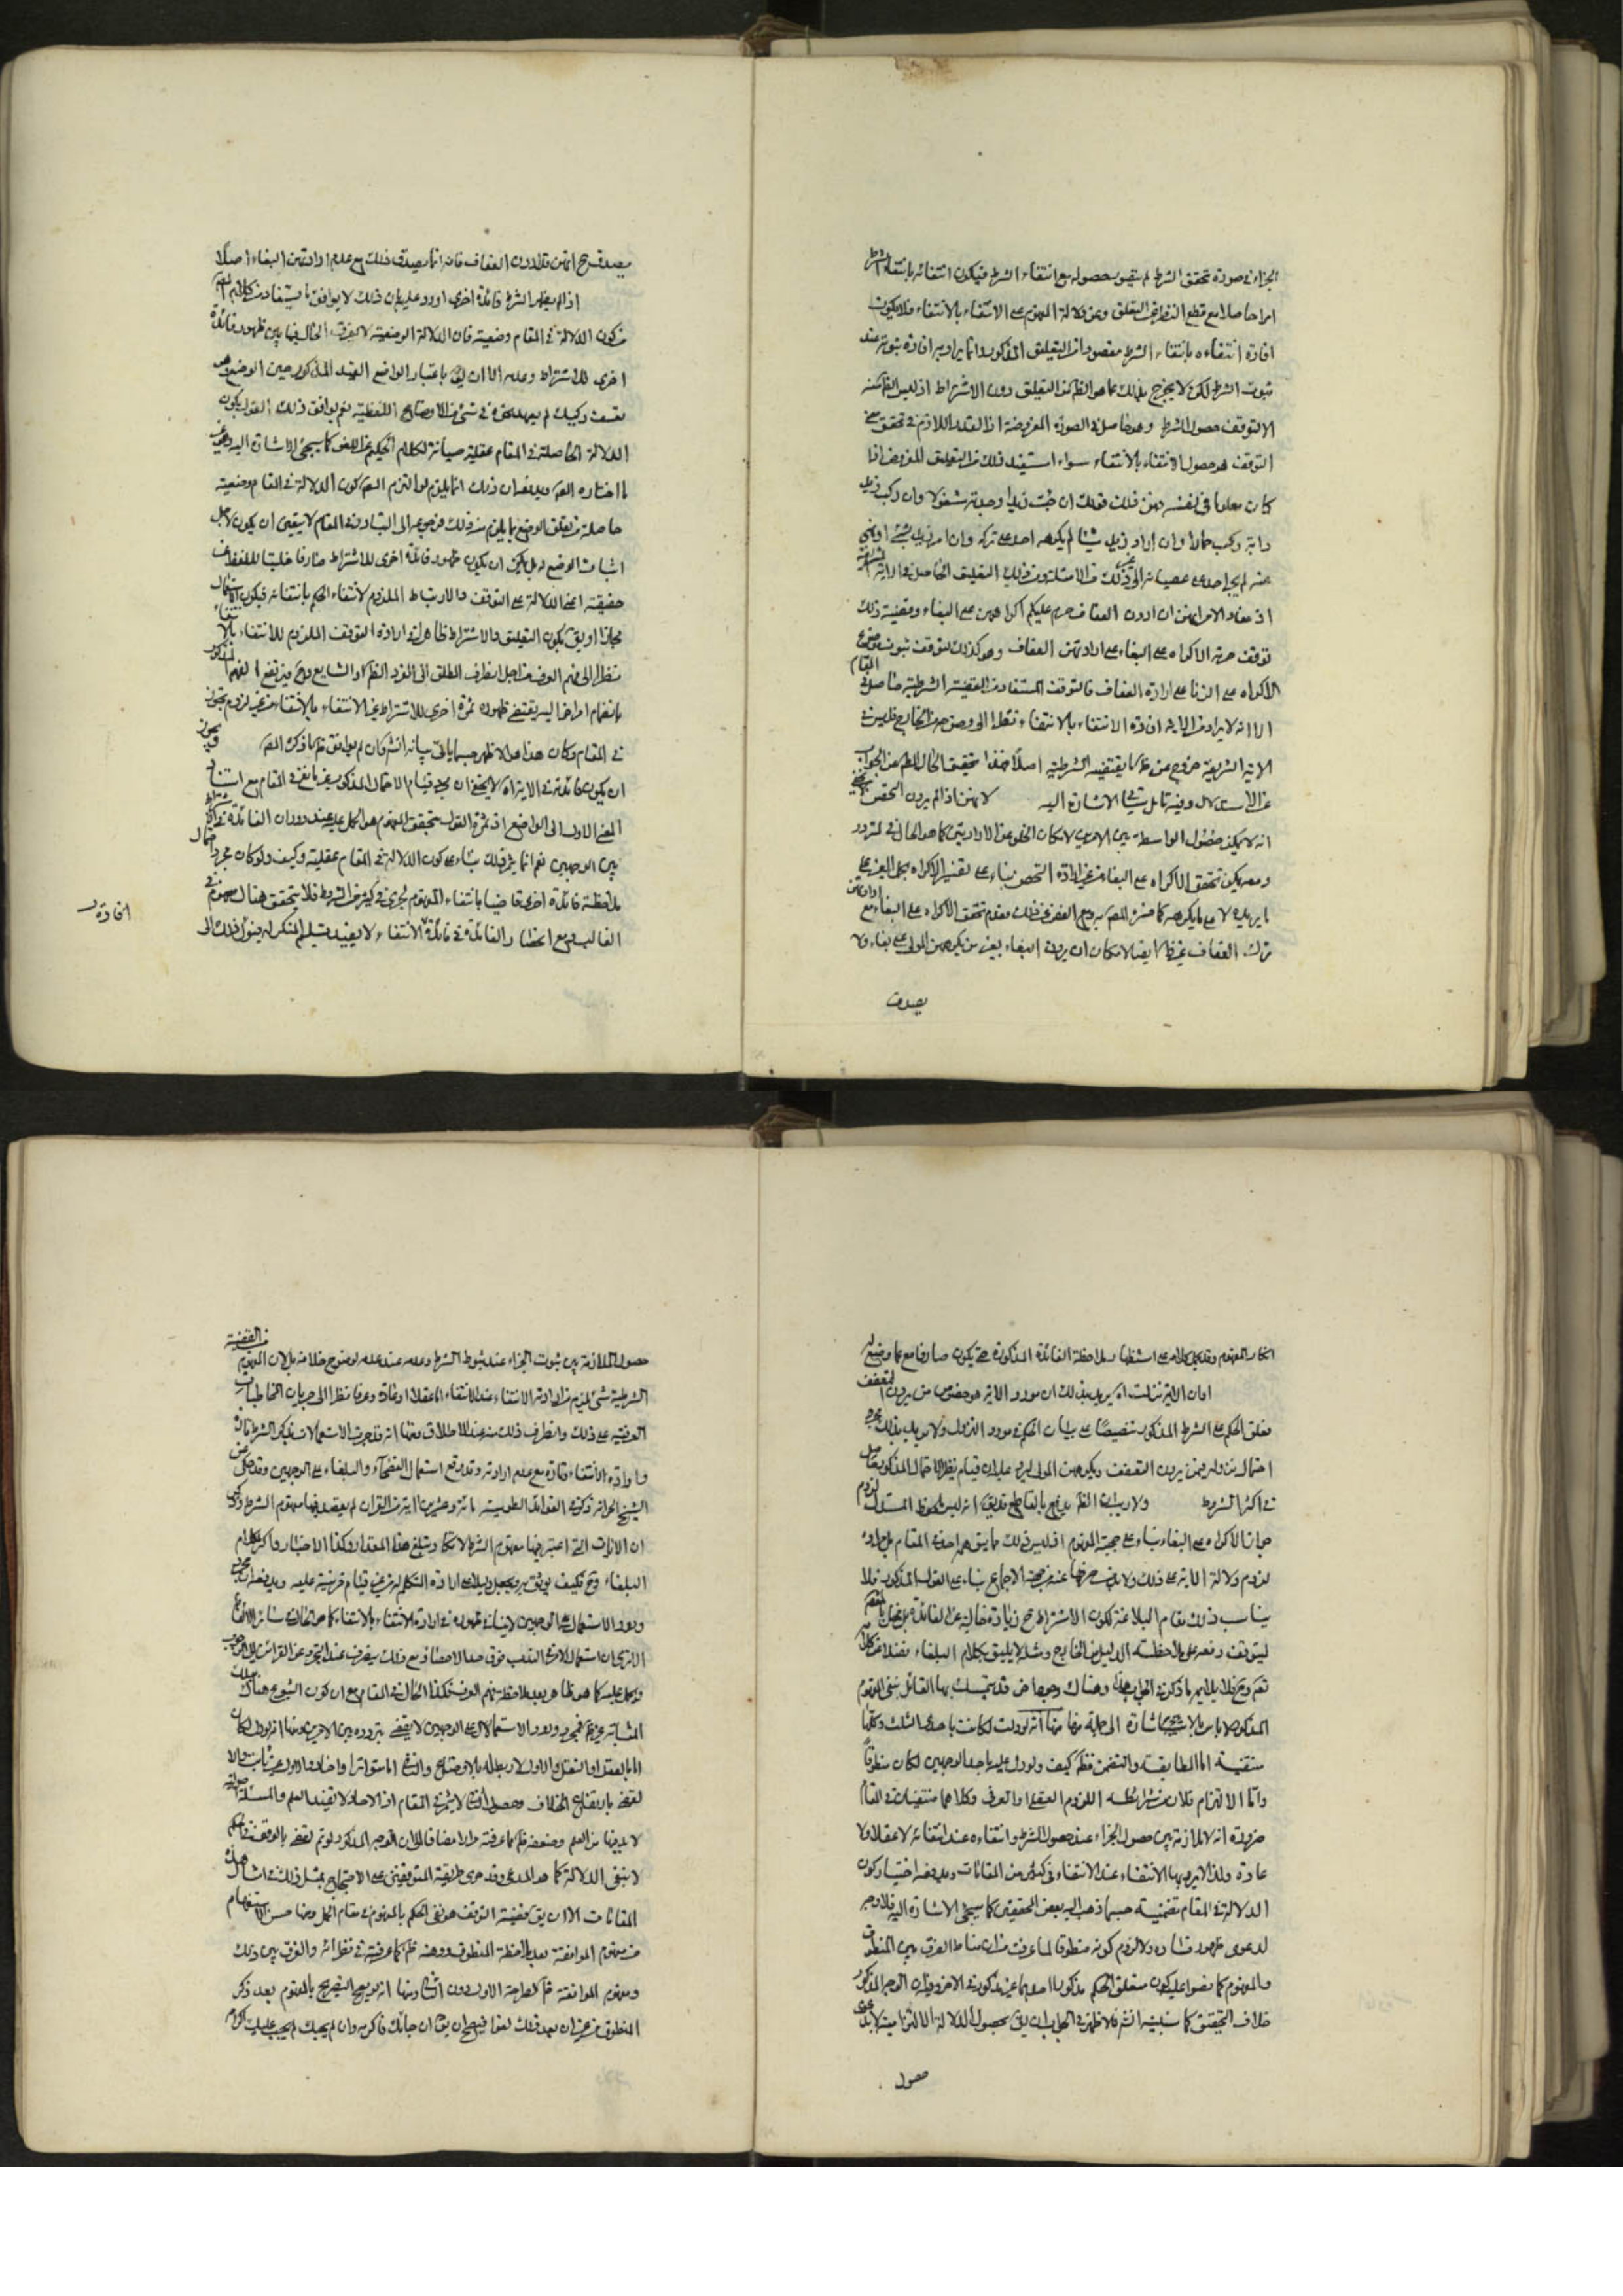 الجزاء في صورة تحقق الشرط لم يتصور حصوله مع انتفاء الشرط فيكون انتفائه بانتفاء الشرط
امرا حاصلا مع قطع النظر عن التعليق ومن دلالة المفهوم على الانتفاء بالانتفاء فلا يكون
افادة انتفاءه بانتفاء الشرط مقصودا من التعليق المذكور وانما يراد به افادة ثبوته عند
ثبوت الشرط لكن لا يخرج بذلك عما هو الظ من التعليق دون الاشتراط اذ ليس الظ منه
الا توقف حصول الشرط وهو حاصل في الصورة المفروضة اذ القدر اللازم في تحقق معنى
التوقف هو حصول الانتفاء بالانتفاء سواء استفيد ذلك من التعليق المفروض او
كان معلوما في نفسه ومن ذلك قولك ان جئت زيدا وجدته مشغولا وان ركب زيد
دابة ركب حمارا وان اراد زيد شيئا لم يكرهه احد على تركه وان امر زيد بشئ او نهى
عنه لم يجر احد على عصيانه الى غير ذلك من الامثلة ومن ذلك التعليق الحاصل في الاية الشريفة
اذ مفاد الامر انهن ان اردن العفاف حرم عليكم اكراههن على البغاء وقضية ذلك
توقف حرمة الاكراه على البغاء على ارادتهن العفاف وهو كذلك لتوقف ثبوت موضوع
الاكراه على الزنا على ارادة العفاف فالتوقف المستفاد من القضية الشرطية حاصل في المقام
الا انه لا يراد من الاية افادة الانتفاء بالانتفاء نظرا الى وضوحه من الخارج فليس في
الاية الشريفة خروج عن ظ ما يقتضيه الشرطية اصلا فهذا تحقيق الحال في الجواب
عن الاستدلال وفيه تامل يأتي الاشارة اليه لانهن اذا لم يردن التحصن
انه لا يمكن حصول الواسطة بين الامرين لامكان الخلو عن الارادتين كما هو الحال في المتردد
ومعه يمكن تحقق الاكراه على البغاء من غير ارادة التحصن بناء على تفسير الاكراه بحمل الغير على
ما يريده لا على ما يكرهه كما فسره المصـ ومع الغض عن ذلك فعدم تحقق الاكراه على البغاء مع ارادتهن
ترك العفاف غير ظ ايضا لامكان ان يردن البغاء بغير من يكرههن المولى على بغاءه ولا
يصدق
يصدق ح انهن قد اردن العفاف فانه انما يصدق ذلك مع عدم ارادتهن البغاء اصلا
اذا لم يظهر للشرط فائدة اخرى اورد عليه بان ذلك لا يوافق ما يستفاد من كلام المصـ
من كون الدلالة في المقام وضعية فان الدلالة الوضعية لا يفرق الحال فيها بين ظهور فائدة
اخرى للاشتراط وعدمه الا ان يقـ باعتبار الواضع القيد المذكور حين الوضع وهو
تعسف ركيك لم يعهد نحوه في شئ من الاوضاع اللفظية نعم يوافق ذلك القول بكون
الدلالة الحاصلة في المقام عقلية صيانة لكلام الحكيم عن اللغو كما سيجئ الاشارة اليه وهو غير
ما اختاره المصـ ويدفعه ان ذلك انما يلزم لو التزم المصـ كون الدلالة في المقام وضعية
حاصلة من تعلق الوضع بما يلزم منه ذلك فرجوعه الى التبادر في المقام لا يتعين ان يكون لاجل
اثبات الوضع له بل يمكن ان يكون ظهور فائدة اخرى للاشتراط صارفا خلبتا للفظ عن
حقيقته اعنى الدلالة على التوقف والارتباط الملزوم لانتفاء الحكم بانتفائه فيكون الاستعمال
مجازا او يقـ بكون التعليق والاشتراط ظاهرا في ارادة التوقف الملزوم للانتفاء بالانتفاء
نظرا الى فهم العرف من اجل انصراف المطلق الى الفرد الظ كما والشايع وح فيرتفع الفهم المذكور
بانضمام امر اخر اليه يقتضى ظهور ثمرة اخرى للاشتراط غير الانتفاء بالانتفاء من غير لزوم تجوز
في المقام وكان هذا هو الاظهر حسبما ياتي بيانه انشـ وان لم يوافق ظ ما ذكره المصـ ويجوز
ان يكون فائدته في الاية اه لا يخفى ان مجرد قيام الاحتمال المذكور غير نافع في المقام مع استناد
المعنى الاول الى الواضع اذ ثمرة القول بتحقق المفهوم هو الحمل عليه عند دوران الفائدة في الاشتراط
بين الوجهين نعم انما يثمر ذلك بناء على كون الدلالة في المقام عقلية وكيف ولو كان مجرد احتمال
ملاحظة فائدة اخرى قاضيا بانتفاء المفهوم لجرى في كثير من الشروط فلا يتحقق هناك مفهوم في
الغالب ومع انحصار الفائدة في فائدة الانتفاء لا يفيد تسليم المنكر له فيؤل ذلك الى
افادة
انكار المفهوم وقد يحمل كلامه على استظهار ملاحظة الفائدة المذكورة حتى يكون صارفا مع ما وضع له
او ان الاية نزلت اه يريد بذلك ان مورد الاية هو خصوص من يردن التعفف
فعلق الحكم على الشرط المذكور تنصيصا على بيان الحكم في مورد النزول ولا يريد بذلك مجرد
احتمال نزوله فيمن يردن التعفف ويكرههن المولى ليرد عليه ان قيام نظير الاحتمال المذكور حاصل
في اكثر الشروط ولا ريب ان الظ يدفع بالقاطع قد يقـ انه ليس ملحوظ المستدل لزوم
جواز الاكراه على البغاء بناء على حجية المفهوم اذ ليس ذلك ما يتوهمه احد في المقام بل مراده
لزوم دلالة الاية على ذلك ولا يدفع صرفها عنه من جهة الاجماع بناء على القول المذكور فلا
يناسب ذلك مقام البلاغة لكون الاشتراط ح زيادة خالية عن الفائدة بل مخل بالمقصود
ليتوقف دفعه على ملاحظة الدليل من الخارج ومثله لا يليق بكلام البلغاء فضلا عن كلامه
تعـ وح فلا يلايم ما ذكره في الجواب هذا وهناك وجوه اخر قد يتمسك بها القائل بنفي المفهوم
المذكور لا باس بالاشارة الى جملة منها منها انه لو دلت لكانت باحدى الثلث وكلها
منتفية اما المطابقة والتضمن فظ كيف ولو دل عليه باحد الوجهين لكان منطوقا
واما الالتزام فلان من شرائطه اللزوم العقلي او العرفي وكلاهما منتفيان في المقام
ضرورة انه لا ملازمة بين حصول الجزاء عند حصول الشرط وانتفاءه عند انتفائه لا عقلا ولا
عادة ولذا لا يراد بها الانتفاء عند الانتفاء في كثير من المقامات ويدفعه اختيار كون
الدلالة في المقام تضمنية حسبما ذهب اليه بعض المحققين كما سيجئ الاشارة اليه فلا وجه
لدعوى ظهور فساده ولا لزوم كونه منطوقا لما عرفت من ان مناط الفرق بين المنطوق
والمفهوم كما نصوا عليه كون متعلق الحكم مذكورا في احدهما غير مذكور في الاخر وفيه ان الوجه المذكور
خلاف التحقيق كما سنبينه انشـ فالاظهر في الجواب ان يقـ بحصول الدلالة الالتزامية لا بدعوى
حصول
حصول الملازمة بين ثبوت الجزاء عند ثبوت الشرط وعدمه عند عدمه لوضوح خلافه بل لان المفهوم من القضية
الشرطية شئ يلزم من ارادته الانتفاء عند الانتفاء اما عقلا او عادة وعرفا نظرا الى جريان المخاطبات
العرفية على ذلك وانصراف ذلك منه عند الاطلاق ومنها انه قد جرت الاستعمالات بذكر الشرط تارة
وارادة الانتفاء وتارة مع عدم ارادته وقد وقع استعمال الفصحاء والبلغاء على الوجهين وقد حكى عن
الشيخ الحر انه ذكر في الفوائد الطوسية مائة وعشرين اية من القران لم يقصد فيها مفهوم الشرط وذكر
ان الايات التي اعتبر فيها مفهوم الشرط لا تكاد تبلغ هذا المقدار وكذا الاخبار واكثر كلام
البلغاء وح فكيف يوثق به ويجعل دليلا على ارادة المتكلم له من غير قيام قرينة عليه ويدفعه ان مجرد
ورود الاستعمال على الوجهين لا ينافي ظهوره في ارادة الانتفاء بالانتفاء كما هو الحال في سائر الالفاظ
الا ترى ان استعمال الامر في الندب فوق حد الاحصاء ومع ذلك ينصرف عند التجرد عن القرائن الى الوجوب
ويحمل عليه كما هو ظاهر بعد ملاحظة فهم العرف فكذا الحال في المقام مع ان كون الشيوع هناك بتلك
المثابة غير ظ فمجرد ورود الاستعمال على الوجهين لا يقضى بتردده بين الامرين ومنها انه لو دل لكان
اما بالعقل او النقل والاول لا ربط له بالاوضاع والثاني اما متواترا واحاد والاول غير ثابت والا
لقضى بارتفاع الخلاف وحصول الثاني لا يثمر في المقام اذ الاحاد لا يفيد العلم والمسئلة اصولية
لا بد فيها من العلم وضعفه ظ مما عرفته مرارا مضافا الى ان الوجه المذكور لو تم لقضى بالوقف فالحكم
لا بنفي الدلالة كما هو المدعى وقد جرى طريقة المتوقفين على الاحتجاج بمثل ذلك في امثال هذه
المقامات الا ان يقـ قضية التوقف هو نفي الحكم بالمفهوم في مقام الحمل ومنها حسن الاستفهام
عن مفهوم المخالفة بعد ملاحظة المنطوق ووهنه ظ كما عرفته في نظرائه والفرق بين ذلك
ومفهوم الموافقة ظ لصراحة الاول دون الثاني ومنها انه يصح التصريح بالمفهوم بعد ذكر
المنطوق من غير ان يعد ذلك لغوا فيصح ان يقـ ان جائك فاكرمه وان لم يجئك لم يجب عليك اكرامه